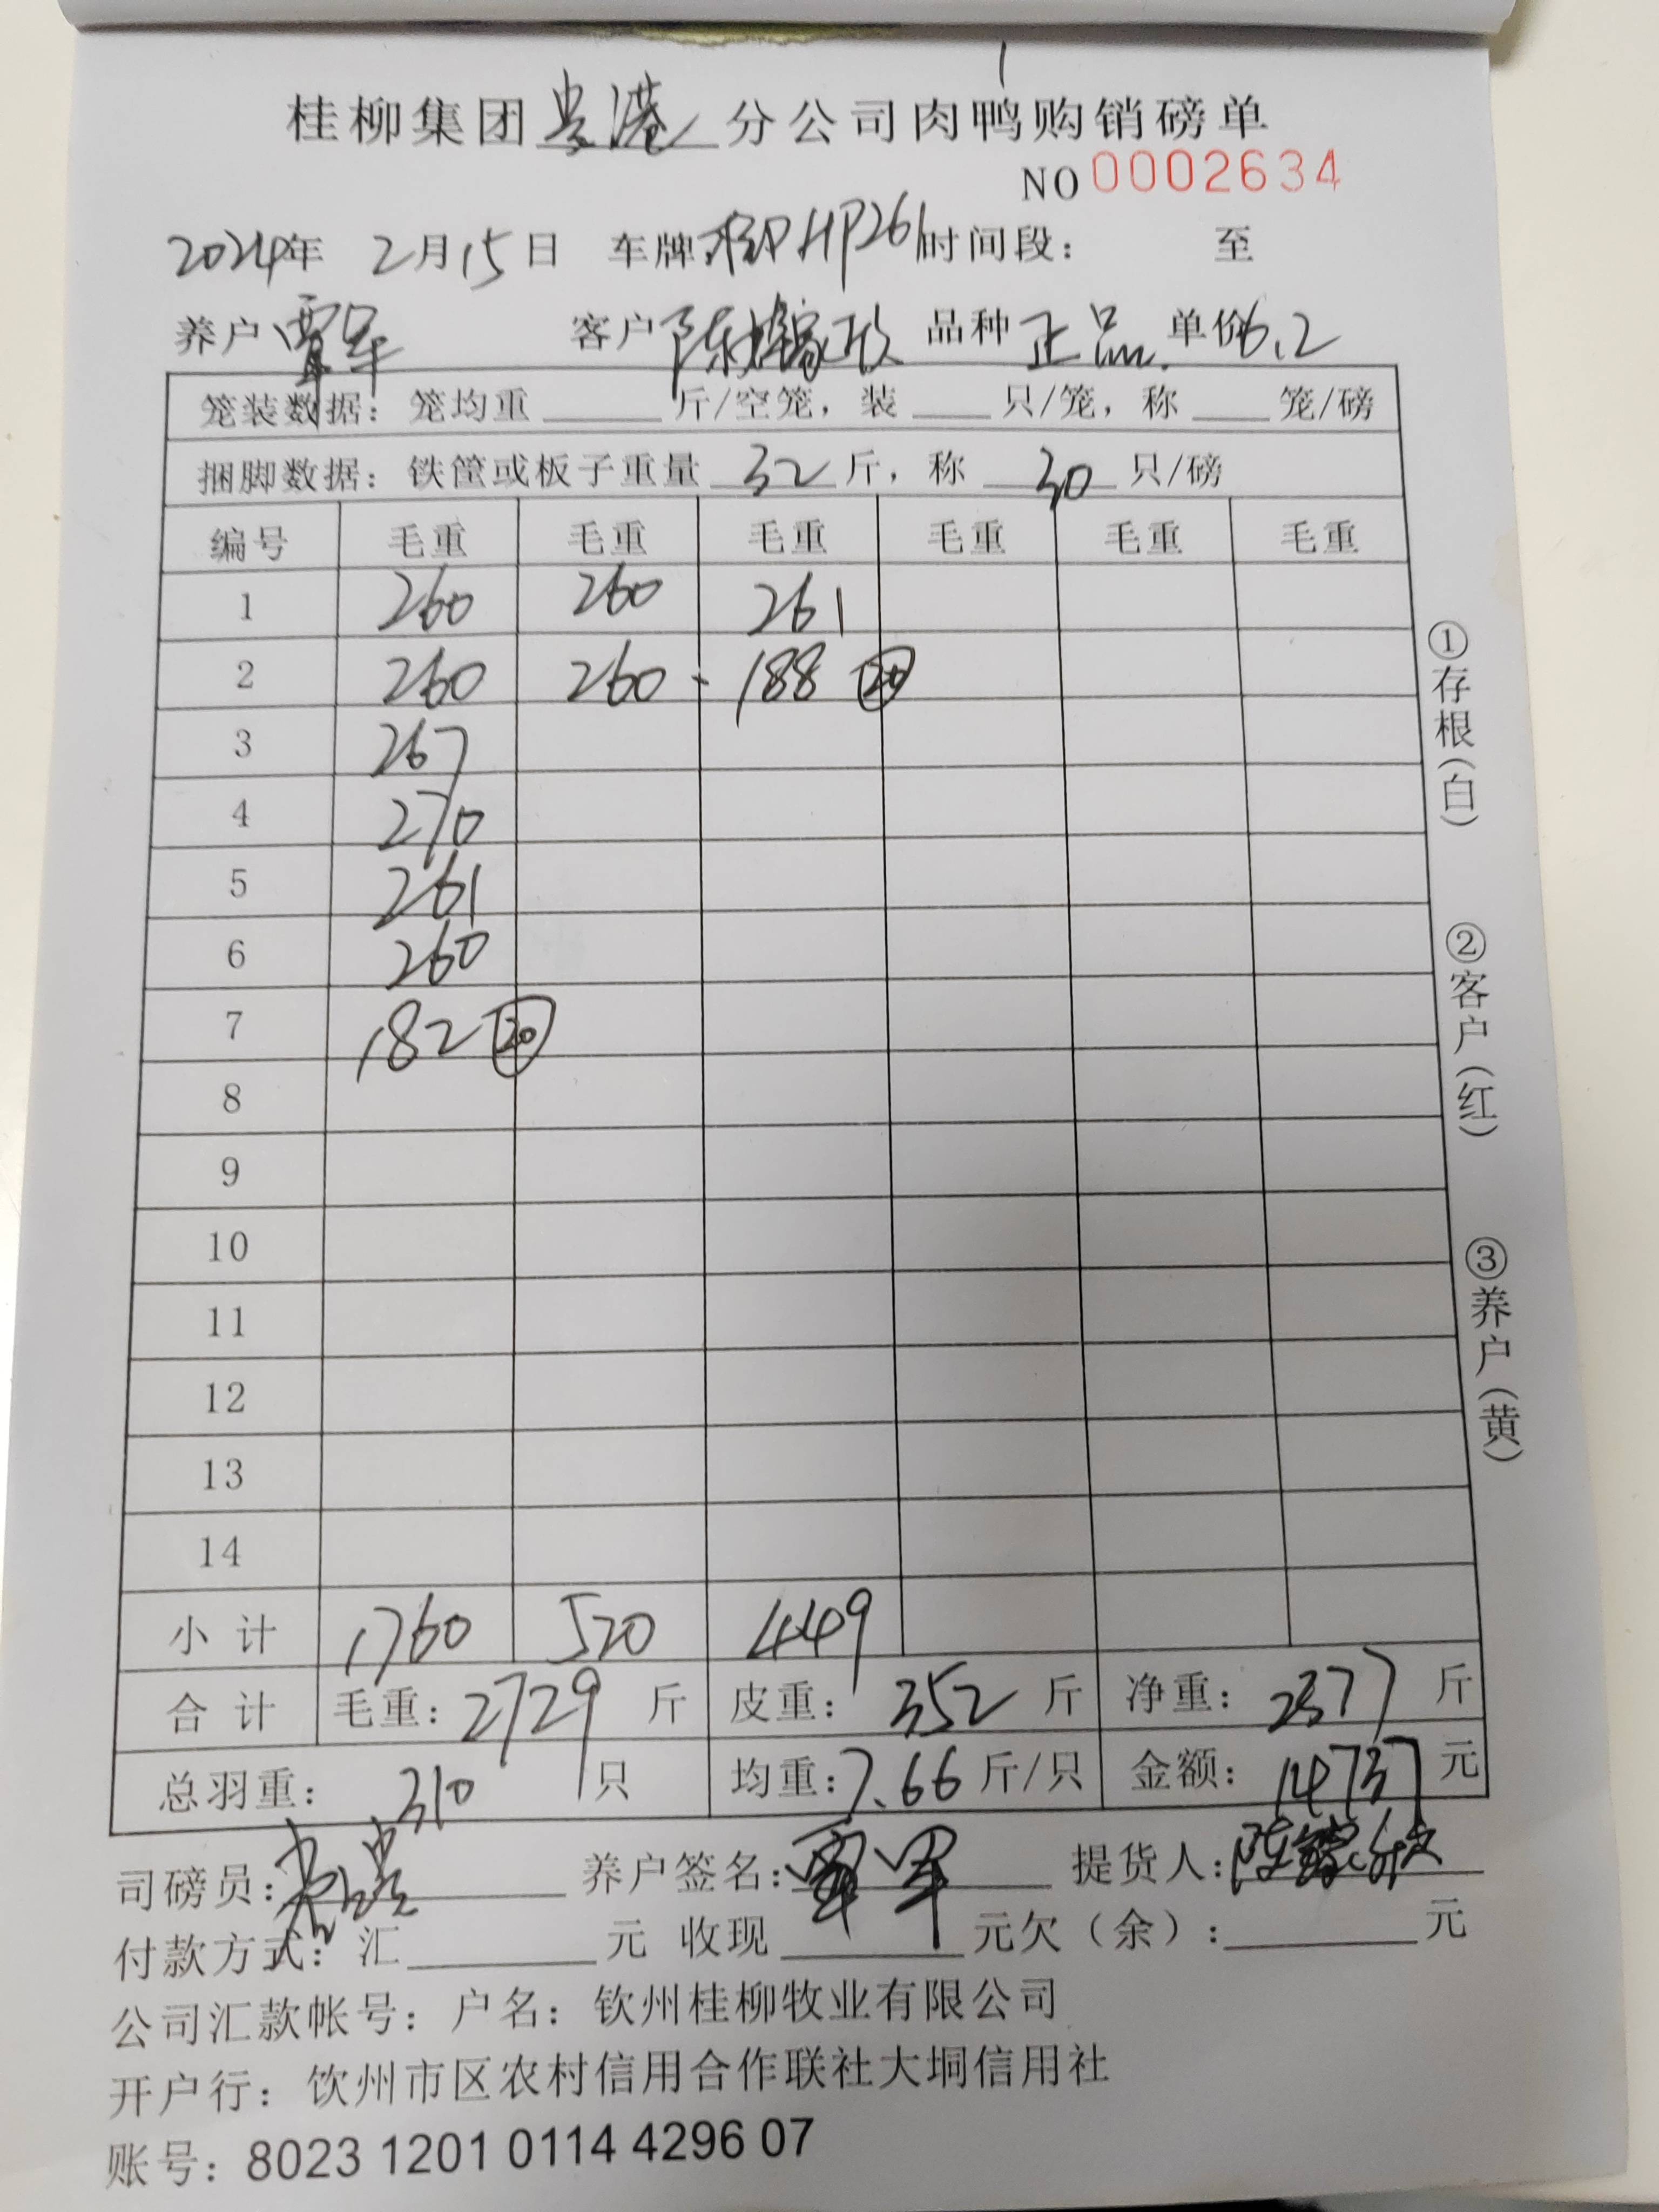 桂柳集团贵港分公司肉鸭购销磅单
NO 0002634
2024年 2月15日 车牌: HP261 时间段: 至
养户 覃军 客户 陈 品种 正品 单价 6.2
笼装数据: 笼均重 斤/空笼, 装 只/笼, 称 笼/磅
捆脚数据: 铁筐或板子重量 32 斤, 称 30 只/磅
编号 毛重 毛重 毛重 毛重 毛重 毛重
1 260 260 261
2 260 260 - 188 20
3 267
4 270
5 261
6 260
7 182 20
8
9
10
11
12
13
14
小计 1760 520 449
合计 毛重: 2729 斤 皮重: 352 斤 净重: 2377 斤
总羽重: 310 只 均重: 7.66 斤/只 金额: 14737 元
司磅员: 养户签名: 覃军 提货人: 陈
付款方式: 汇 元 收现 元欠(余): 元
公司汇款帐号: 户名: 钦州桂柳牧业有限公司
开户行: 钦州市区农村信用合作联社大垌信用社
账号: 8023 1201 0114 4296 07
①存根(白)
②客户(红)
③养户(黄)